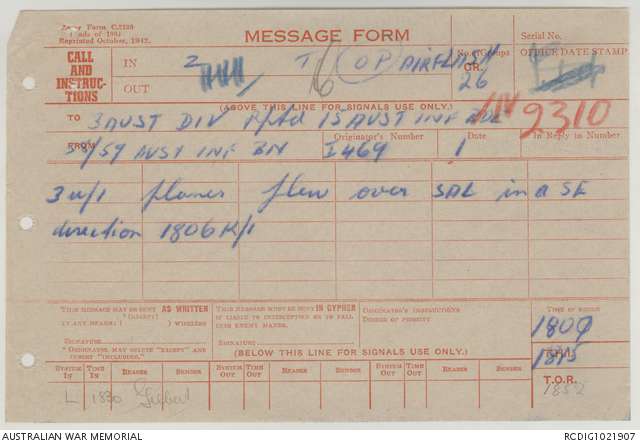 Army Form C.2128
(Pads of 100)
Reprinted October, 1942.
MESSAGE FORM
Serial No.
CALL
AND
INSTRUC-
TIONS
IN
2
T
OP
No. of Groups
GR.
26
OFFICE DATE STAMP.
OUT
(ABOVE THIS LINE FOR SIGNALS USE ONLY.)
2310
TO
3 AUST DIV Rptd 15 AUST INF BDE
FROM
58/59 AUST INF BN
Originator's Number
I469
Date
1
In Reply to Number
3 u/i planes flew over SAL in a SE
direction 1806K/1
THIS MESSAGE MAY BE SENT AS WRITTEN
(EXCEPT)
BY ANY MEANS ( ) WIRELESS
SIGNATURE
* ORIGINATOR MAY DELETE "EXCEPT" AND
INSERT "INCLUDING."
THIS MESSAGE MUST BE SENT IN CIPHER
IF LIABLE TO INTERCEPTION OR TO FALL
INTO ENEMY HANDS.
SIGNATURE
ORIGINATOR'S INSTRUCTIONS
DEGREE OF PRIORITY
TIME OF ORIGIN
1809
1815
T.O.R.
1852
(BELOW THIS LINE FOR SIGNALS USE ONLY.)
SYSTEM IN
TIME IN
READER
SENDER
SYSTEM OUT
TIME OUT
READER
SENDER
SYSTEM OUT
TIME OUT
READER
SENDER
L
1830
Gilbert
AUSTRALIAN WAR MEMORIAL
RCDIG1021907